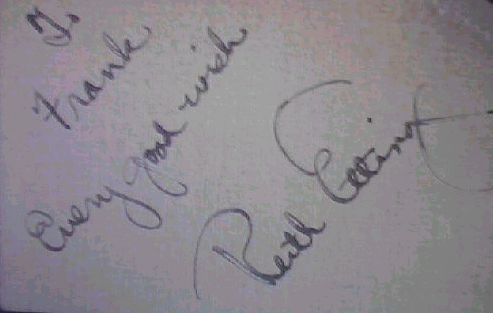 To
Frank
Every good wish
Ruth Etting